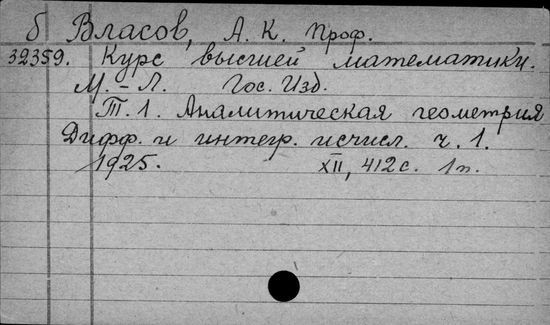 б Власов, А. К. проф.
32359. Курс высшей математики.
М.-Л. Гос. Изд.
Т. 1. Аналитическая геометрия
Дифф. и интегр. исчисл. ч. 1.
1925. XII, 412 с. 1 п.